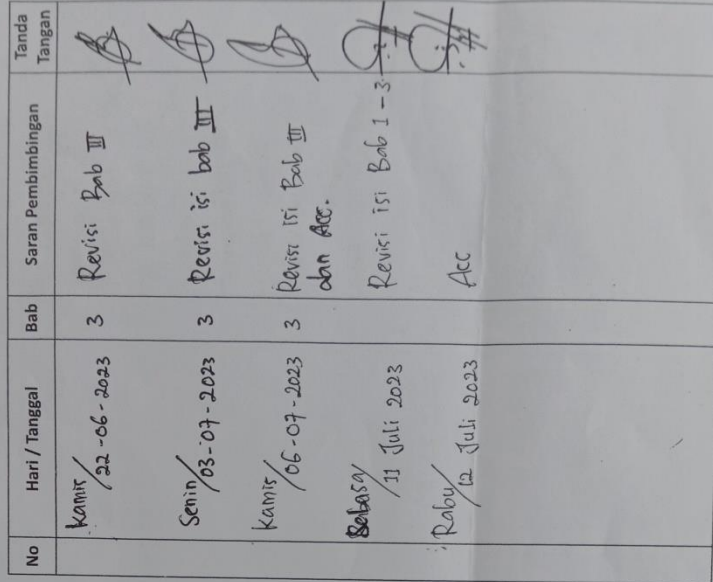 No Hari / Tanggal Bab Saran Pembimbingan Tanda Tangan
Kamis/22-06-2023 3 Revisi Bab III
Senin/03-07-2023 3 Revisi isi bab III
Kamis/06-07-2023 3 Revisi isi Bab III
dan Acc.
/11 Juli 2023 Revisi isi Bab 1-3
Rabu/12 Juli 2023 Acc